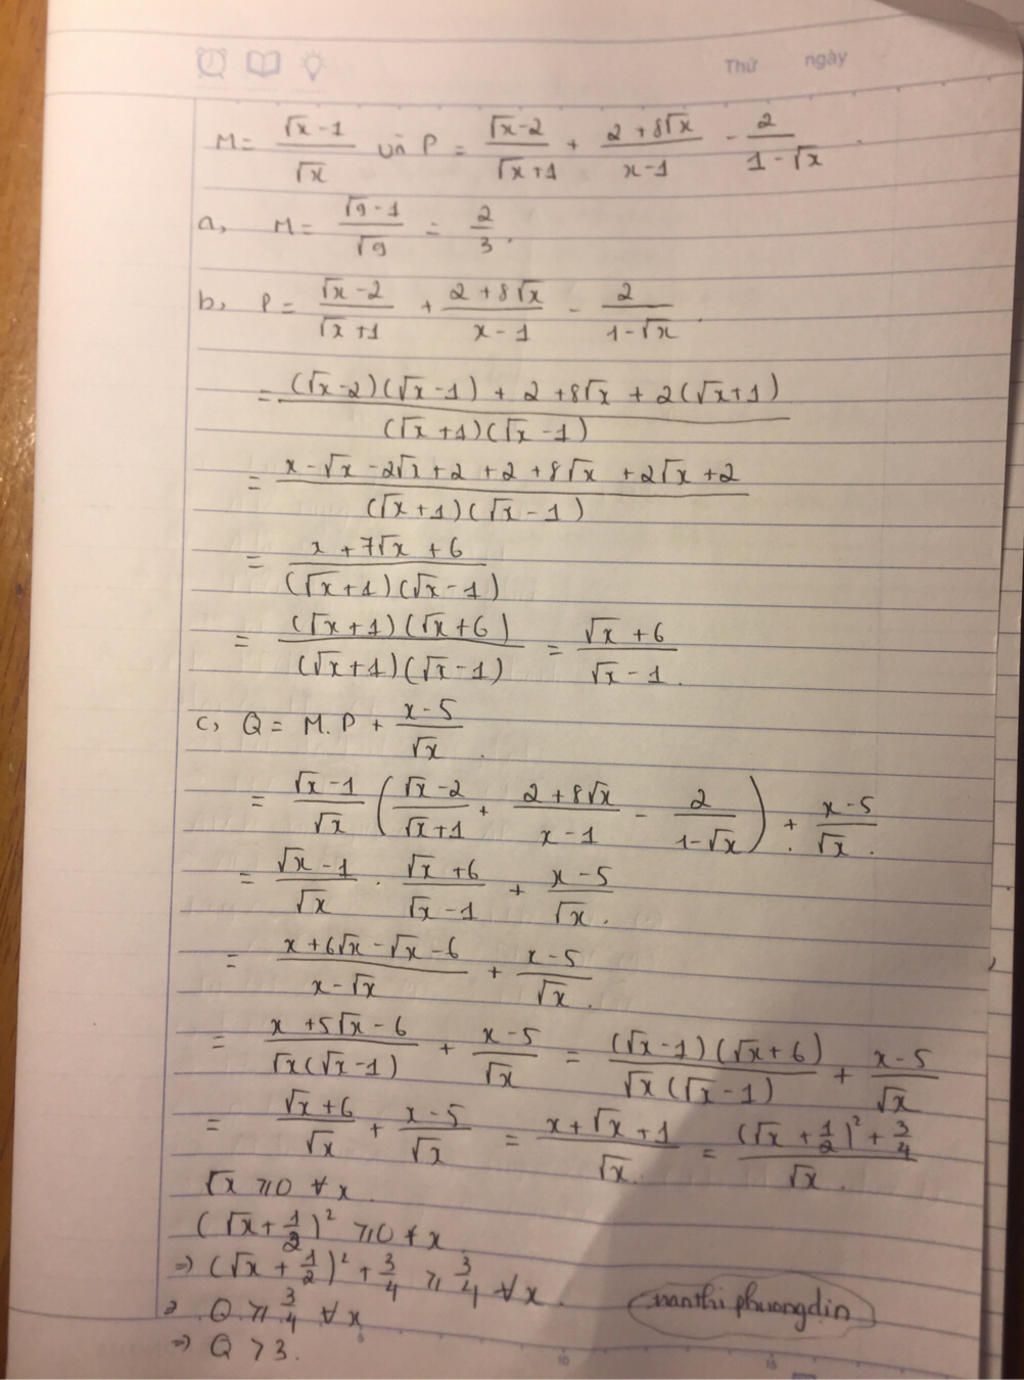 Thứ ngày
M = \frac{\sqrt{x} - 1}{\sqrt{x}} và P = \frac{\sqrt{x} - 2}{\sqrt{x} + 1} + \frac{2 + 8\sqrt{x}}{x - 1} - \frac{2}{1 - \sqrt{x}}.
a, M = \frac{\sqrt{9} - 1}{\sqrt{9}} = \frac{2}{3}.
b, P = \frac{\sqrt{x} - 2}{\sqrt{x} + 1} + \frac{2 + 8\sqrt{x}}{x - 1} - \frac{2}{1 - \sqrt{x}}.
= \frac{(\sqrt{x} - 2)(\sqrt{x} - 1) + 2 + 8\sqrt{x} + 2(\sqrt{x} + 1)}{(\sqrt{x} + 1)(\sqrt{x} - 1)}
= \frac{x - \sqrt{x} - 2\sqrt{x} + 2 + 2 + 8\sqrt{x} + 2\sqrt{x} + 2}{(\sqrt{x} + 1)(\sqrt{x} - 1)}
= \frac{x + 7\sqrt{x} + 6}{(\sqrt{x} + 1)(\sqrt{x} - 1)}
= \frac{(\sqrt{x} + 1)(\sqrt{x} + 6)}{(\sqrt{x} + 1)(\sqrt{x} - 1)} = \frac{\sqrt{x} + 6}{\sqrt{x} - 1}.
c, Q = M.P + \frac{x - 5}{\sqrt{x}}.
= \frac{\sqrt{x} - 1}{\sqrt{x}} \left( \frac{\sqrt{x} - 2}{\sqrt{x} + 1} + \frac{2 + 8\sqrt{x}}{x - 1} - \frac{2}{1 - \sqrt{x}} \right) + \frac{x - 5}{\sqrt{x}}.
= \frac{\sqrt{x} - 1}{\sqrt{x}} . \frac{\sqrt{x} + 6}{\sqrt{x} - 1} + \frac{x - 5}{\sqrt{x}}.
= \frac{x + 6\sqrt{x} - \sqrt{x} - 6}{x - \sqrt{x}} + \frac{x - 5}{\sqrt{x}}.
= \frac{x + 5\sqrt{x} - 6}{\sqrt{x}(\sqrt{x} - 1)} + \frac{x - 5}{\sqrt{x}} = \frac{(\sqrt{x} - 1)(\sqrt{x} + 6)}{\sqrt{x}(\sqrt{x} - 1)} + \frac{x - 5}{\sqrt{x}}
= \frac{\sqrt{x} + 6}{\sqrt{x}} + \frac{x - 5}{\sqrt{x}} = \frac{x + \sqrt{x} + 1}{\sqrt{x}}. = \frac{(\sqrt{x} + \frac{1}{2})^2 + \frac{3}{4}}{\sqrt{x}}.
\sqrt{x} ⩾ 0 ∀ x.
(\sqrt{x} + \frac{1}{2})^2 ⩾ 0 ∀ x.
⇒ (\sqrt{x} + \frac{1}{2})^2 + \frac{3}{4} ⩾ \frac{3}{4} ∀ x.
⇒ Q ⩾ \frac{3}{4} ∀ x
⇒ Q > 3.
nanthiphuongdin
10 15